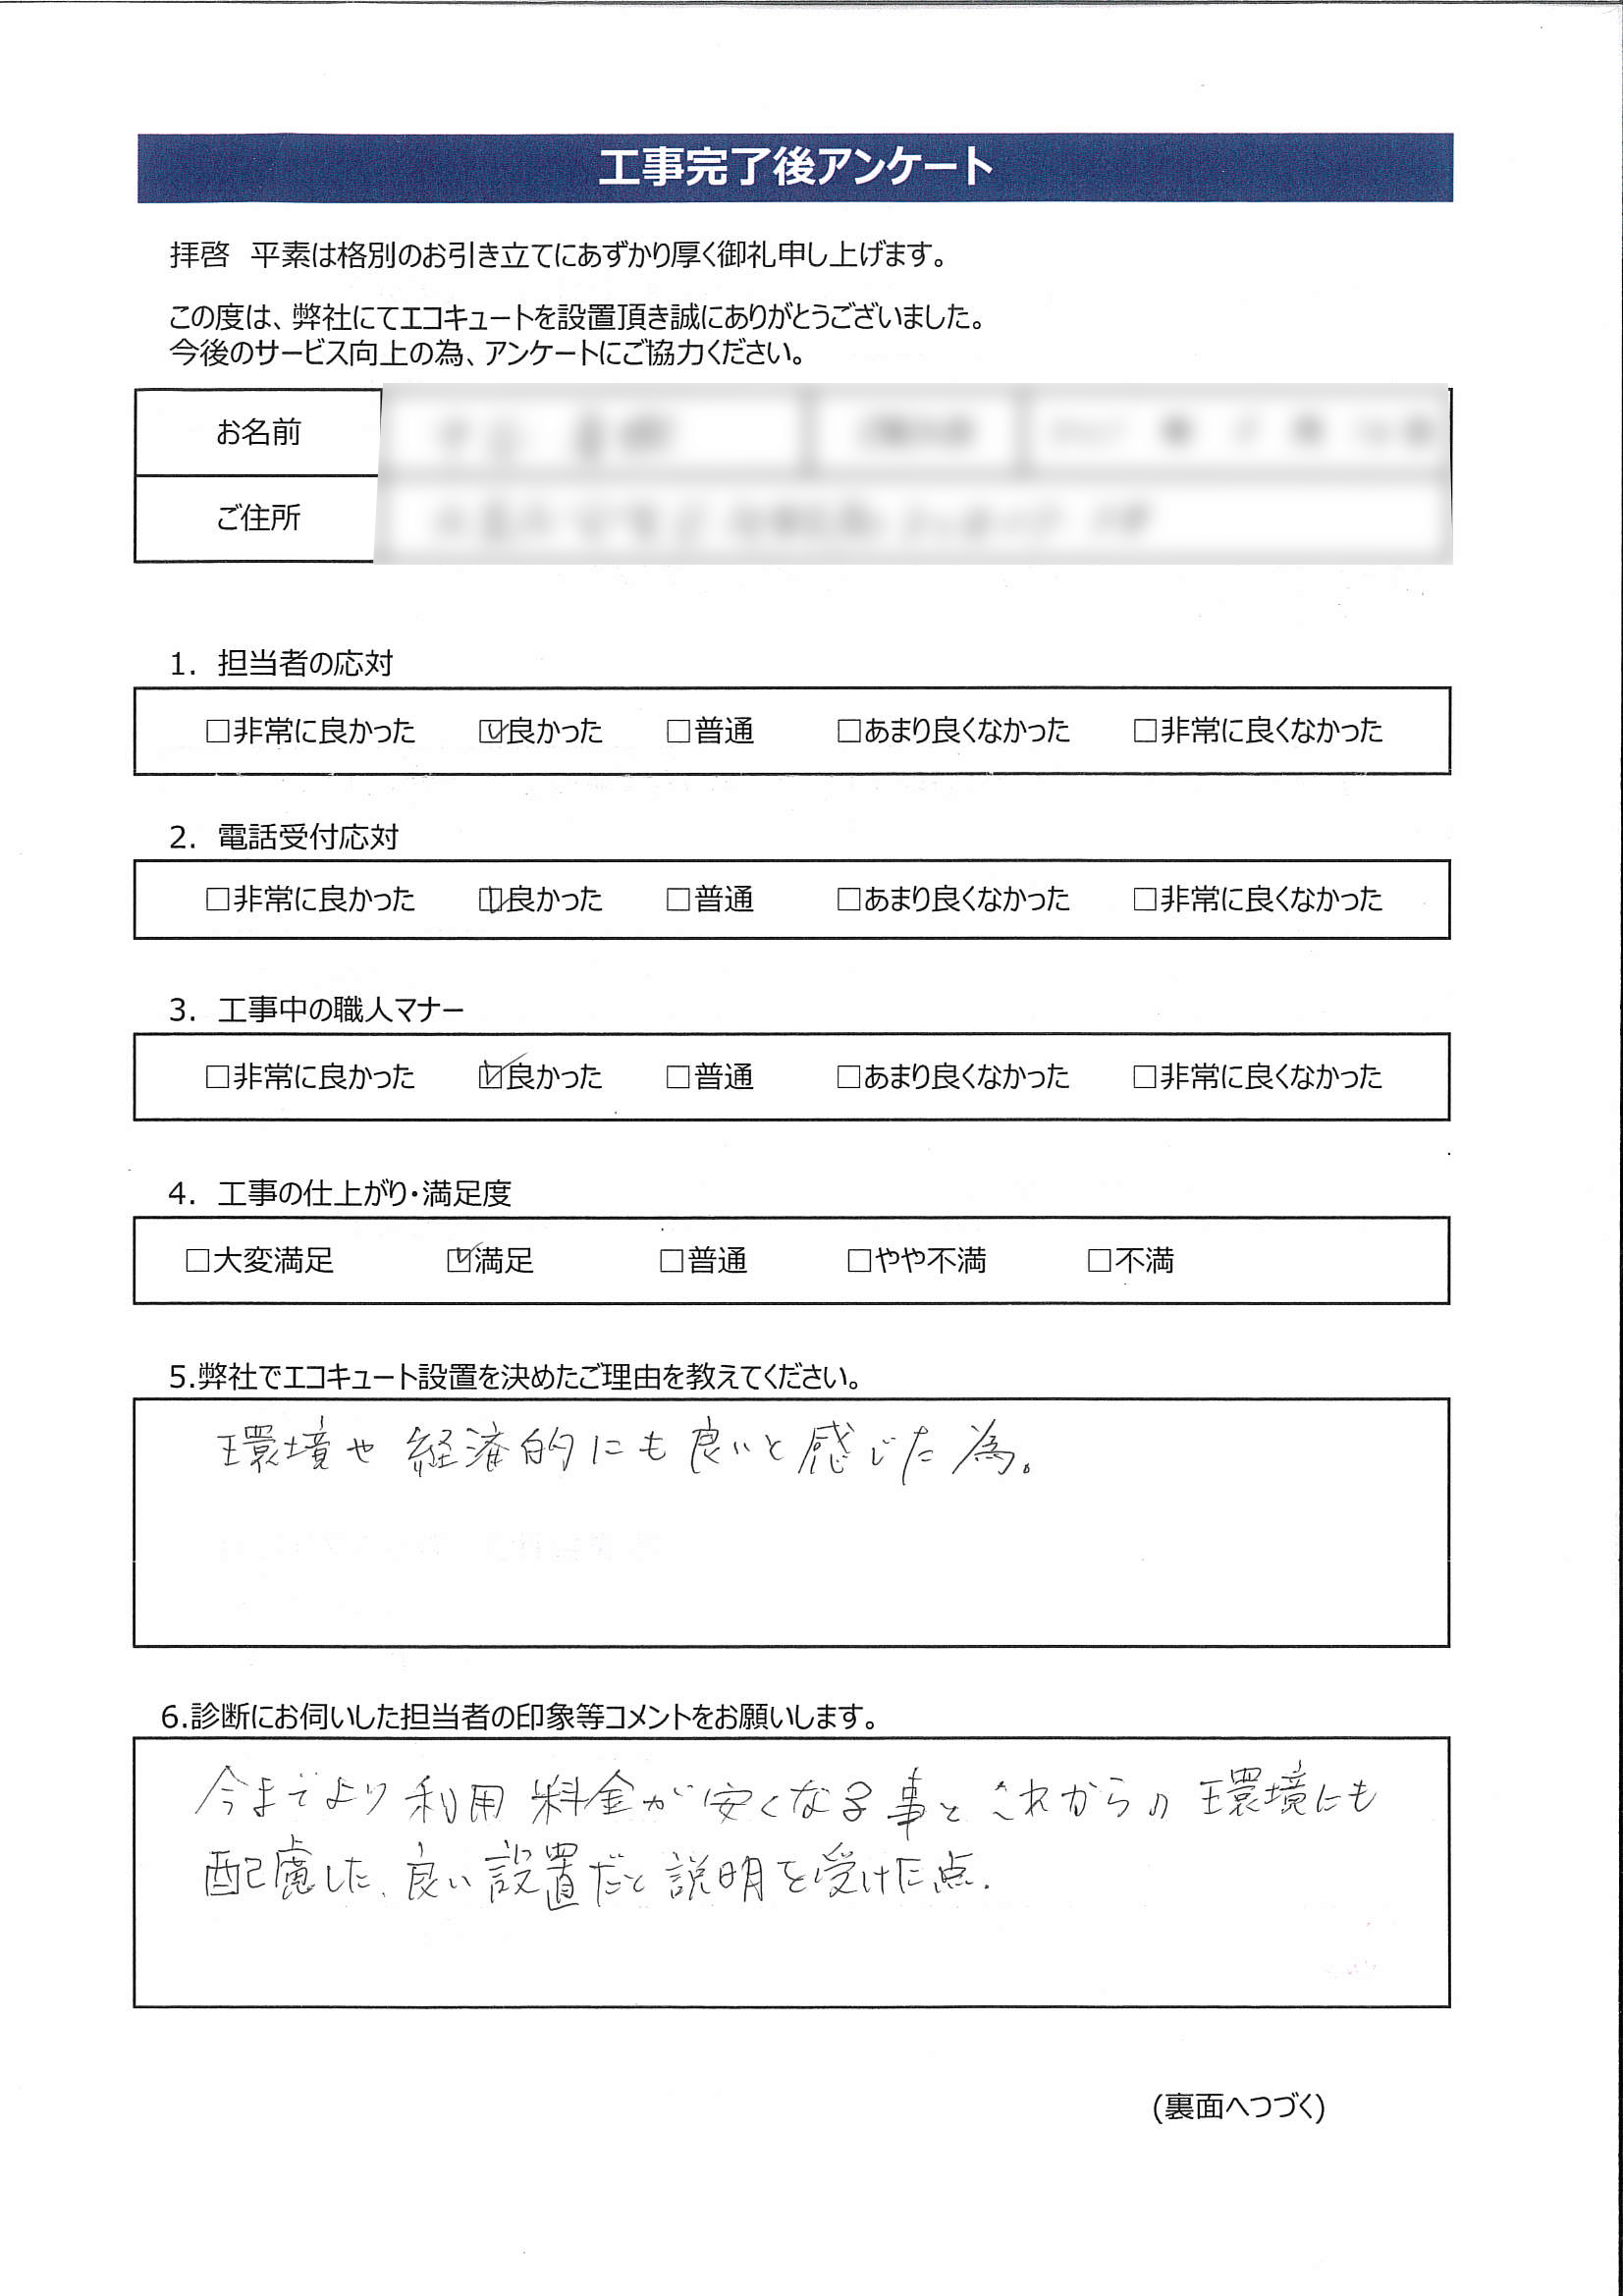 工事完了後アンケート
拝啓　平素は格別のお引き立てにあずかり厚く御礼申し上げます。
この度は、弊社にてエコキュートを設置頂き誠にありがとうございました。
今後のサービス向上の為、アンケートにご協力ください。
お名前
ご住所
1. 担当者の応対
□非常に良かった　☑良かった　□普通　□あまり良くなかった　□非常に良くなかった
2. 電話受付応対
□非常に良かった　☑良かった　□普通　□あまり良くなかった　□非常に良くなかった
3. 工事中の職人マナー
□非常に良かった　☑良かった　□普通　□あまり良くなかった　□非常に良くなかった
4. 工事の仕上がり・満足度
□大変満足　☑満足　□普通　□やや不満　□不満
5.弊社でエコキュート設置を決めたご理由を教えてください。
環境や経済的にも良いと感じた為。
6.診断にお伺いした担当者の印象等コメントをお願いします。
今までより利用料金が安くなる事とこれからの環境にも
配慮した、良い設置だと説明を受けた点.
(裏面へつづく)